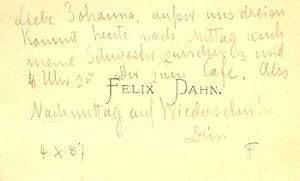 Liebe Johanna, außer uns dreien
kommt heute nach Mittag auch
meine Schwester zurück und
4 Uhr zu Dir zum Cafe. Also
FELIX DAHN.
Nachmittag auf Wiedersehn!
Dein
4.X.87 F